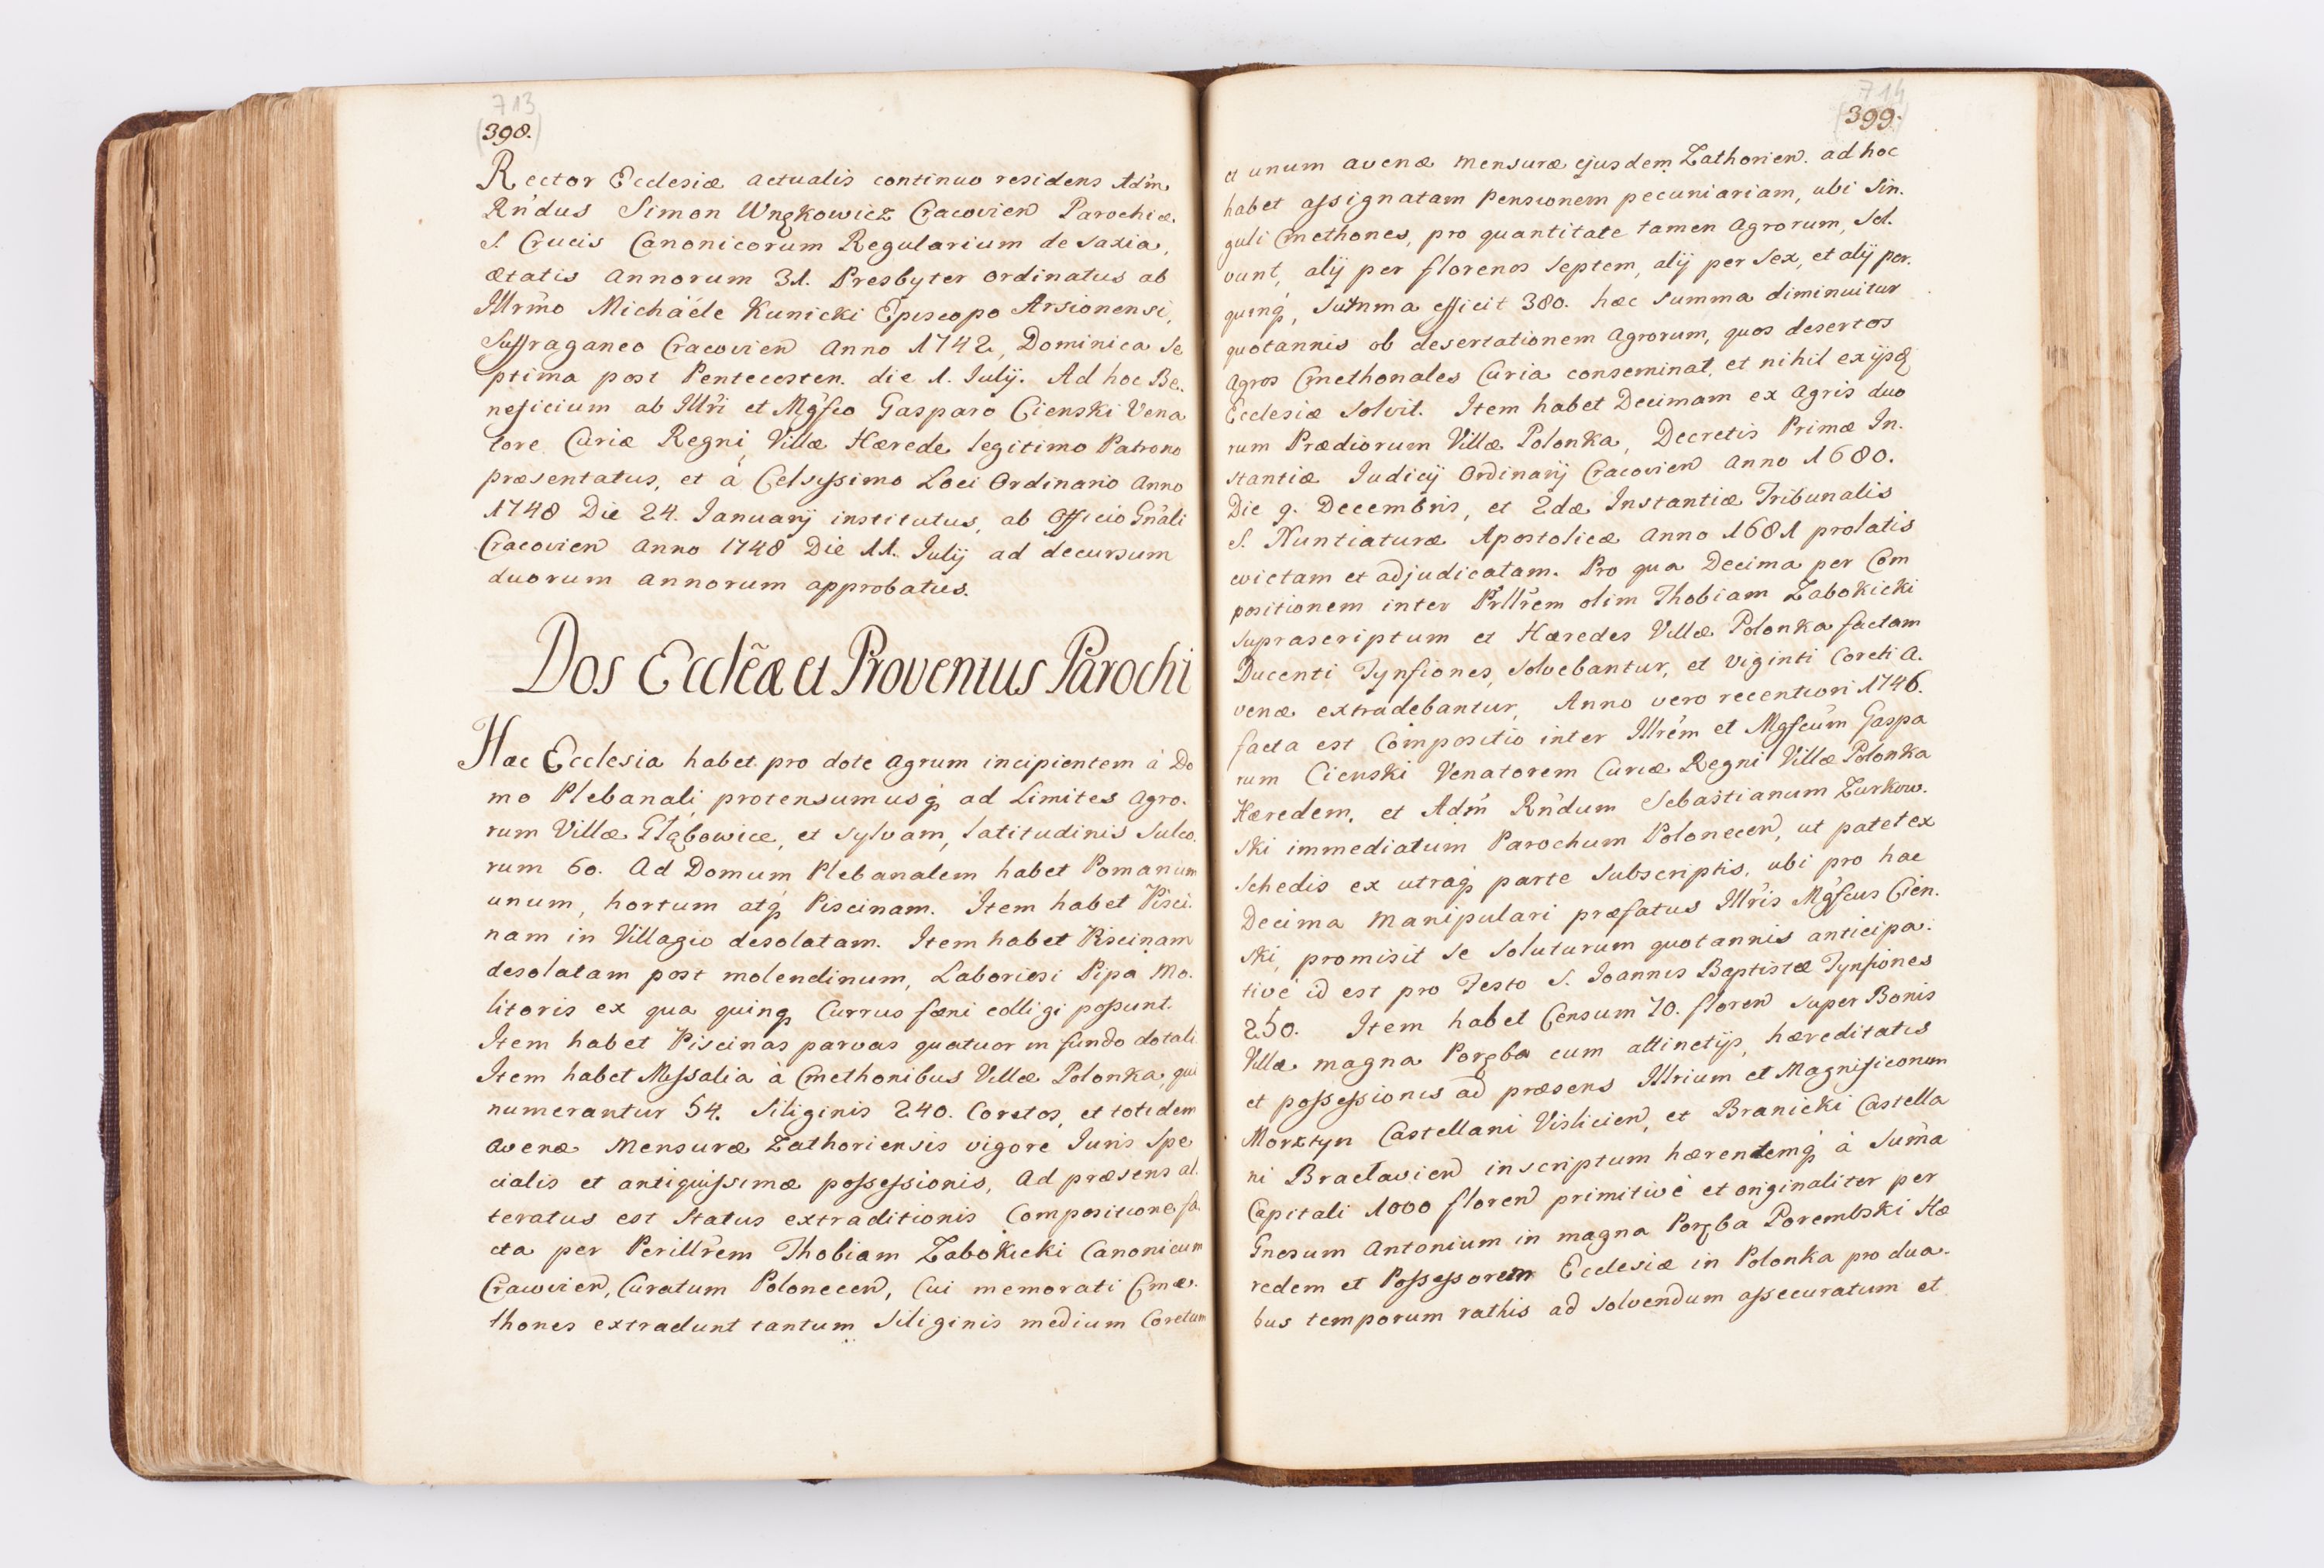 713
(398.)
Rector Ecclesiæ actualis continuo residens Adm̃
Rn̄dus Simon Wnękowicz Cracovien Parochiæ.
S. Crucis Canonicorum Regularium de Saxia,
ætatis annorum 31. Presbyter ordinatus ab
Illrm̄o Michaéle Kunicki Episcopo Arsionensi,
Suffraganeo Cracovien Anno 1742, Dominica Se
ptima post Pentecosten. die 1. Julij. Ad hoc Be.
neficium ab Illri et Mgfco Gasparo Cienski Vena
tore Curiæ Regni, Villæ Hærede legitimo Patrono
præsentatus, et á Celsissimo Loci Ordinario Anno
1748 Die 24. Januarij institutus, ab Officio Gn̄ali
Cracovien Anno 1748 Die 11. Julij ad decursum
duorum annorum approbatus.
Dos Ecclẽæ et Proventus Parochi
Hæc Ecclesia habet pro dote agrum incipientem à Do
mo Plebanali protensum usq; ad Limites Agro.
rum Villæ Głąbowice, et sylvam, latitudinis Sulco.
rum 60. Ad Domum Plebanalem habet Pomarium
unum, hortum atq; Piscinam. Item habet Pisci.
nam in Villagio desolatam. Item habet Piscinam
desolatam post molendinum, Laboriosi Pipa Mo.
litoris ex qua quinq; Currus fæni colligi possunt.
Item habet Piscinas parvas quatuor in fundo dotali
Item habet Missalia à Cmethonibus Villæ Polonka, qui
numerantur 54. Siliginis 240. Coretos, et totidem
avenæ Mensuræ Zathoriensis vigore Juris Spe
cialis et antiquissimæ possessionis, Ad præsens al.
teratus est Status extraditionis Compositione fa
cta per Perillrem Thobiam Zabokicki Canonicum
Cracovien, Curatum Polonecen, Cui memorati Cme.
thones extradunt tantum Siliginis medium Coretum
714
(399.)
et unum avenæ mensuræ ejusdem Zathorien. ad hoc
habet assignatam Pensionem pecuniariam, ubi Sin.
guli Cmethones, pro quantitate tamen Agrorum, Sol.
vunt, alij per florenos Septem, alij per Sex, et alij per.
quinq;, Summa efficit 380. hæc Summa diminuitur
quotannis ob desertationem Agrorum, quos desertos
Agros Cmethonales Curia conseminat, et nihil ex ijsq;
Ecclesiæ Solvit. Item habet Decimam ex Agris duo
rum Prædiorum Villæ Polonka, Decretis Primæ In.
stantiæ Judicij Ordinarij Cracovien Anno 1680.
Die 9. Decembris, et 2dæ Instantiæ Tribunalis
S. Nuntiaturæ Apostolicæ Anno 1681 prolatis
evictam et adjudicatam. Pro qua Decima per Com
positionem inter Prllrem olim Thobiam Zabokicki
suprascriptum et Hæredes Villæ Polonka factam
Ducenti Tynfiones, solvebantur, et viginti Coreti A.
venæ extradebantur, Anno vero recentiori 1746.
facta est Compositio inter Illrem et Mgfcum Gaspa
rum Cienski Venatorem Curiæ Regni Villæ Polonka
Hæredem, et Adm̄ Rn̄dum Sebastianum Zurkow.
ski immediatum Parochum Polonecen, ut patet ex
Schedis ex utraq; parte Subscriptis, ubi pro hac
Decima manipulari præfatus Illris Mgfcus Cien.
ski, promisit se soluturum quotannis anticipa.
tivé id est pro Festo S. Joannis Baptistæ Tynfiones
250. Item habet Censum 70. floren super Bonis
Villæ magna Poręba cum attinetijs, hæreditatis
et possessionis ad præsens Illrium et Magnificorum
Morztyn Castellani Vislicien, et Branicki Castella
ni Braclavien inscriptum hærentemq; á Suma
Capitali 1000 floren primitivé et originaliter per
Gnosum Antonium in magna Poręba Porembski Hæ
redem et Possessorem Ecclesiæ in Polonka pro dua.
bus temporum rathis ad solvendum assecuratum et